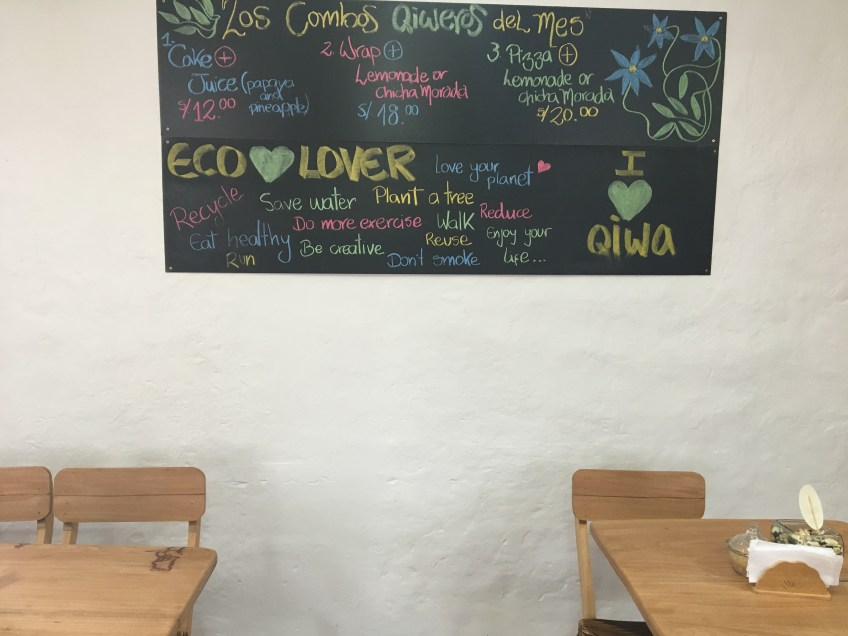 "Los Combos Qiweros del Mes"
1. Cake +
Juice (papaya
and
pineapple)
S/12.00
2. Wrap +
Lemonade or
chicha Morada
S/ 18.00
3. Pizza +
Lemonade or
chicha Morada
S/20.00
ECO LOVER
Love your
planet
Recycle
Save water
Plant a tree
Do more exercise
Walk
Reduce
Eat healthy
Be creative
Reuse
Enjoy your
Life...
Run
Don't smoke
I
Qiwa